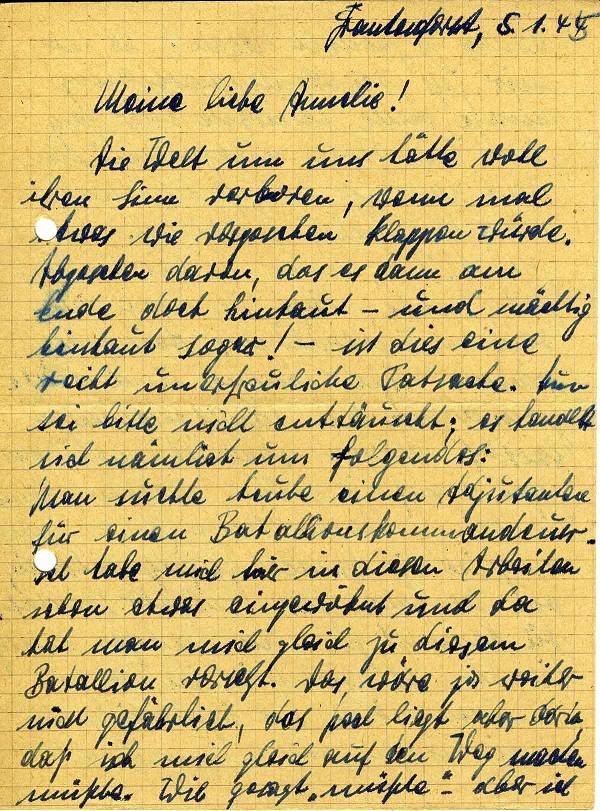 5.1.44
Meine liebe Annelie!
Die Welt um uns hätte wohl
ihren Sinn verloren, wenn mal
etwas wie vorgesehen klappen würde.
Abgesehen davon, das es dann am
Ende doch hinhaut – und mächtig
hinhaut sogar! – ist dies eine
recht unerfreuliche Tatsache. Nun
sei bitte nicht enttäuscht; es handelt
sich nämlich um folgendes:
Man suchte heute einen Adjutanten
für einen Batallionskommandeur.
Ich habe mich hier in diesen Arbeiten
schon etwas eingewöhnt und da
hat man mich gleich zu diesem
Batallion versetzt. Das wäre ja weiter
nicht gefährlich, das liegt aber darin,
daß ich mich gleich auf den Weg machen
müßte. Wie gesagt „müßte" – aber ich